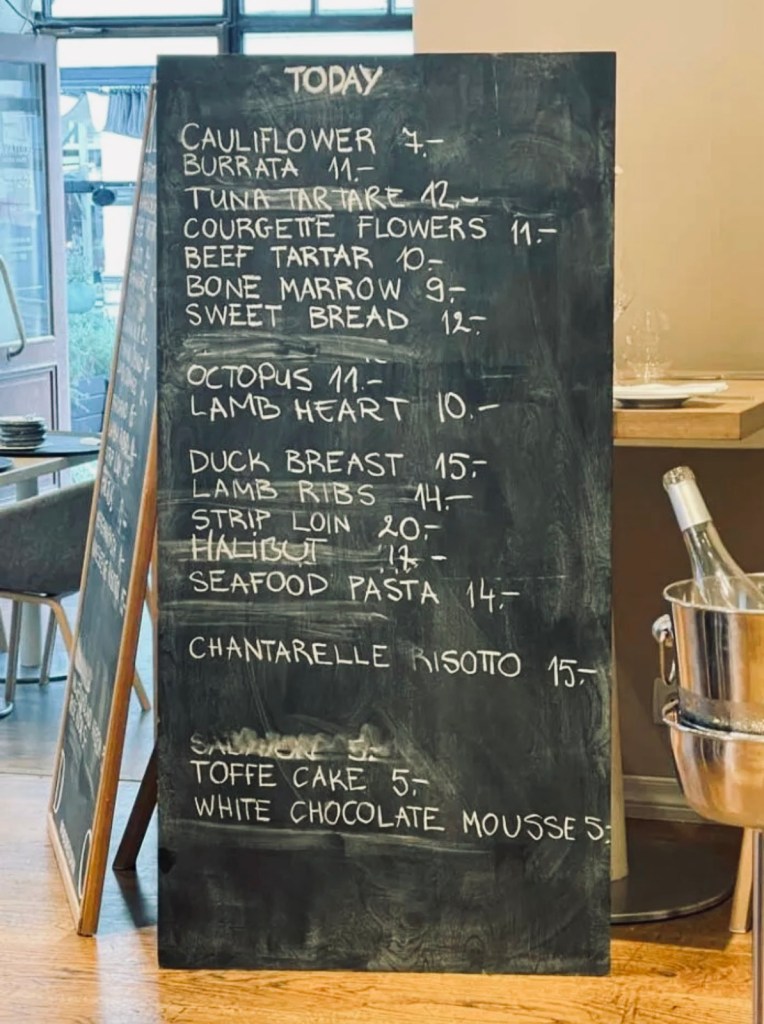 TODAY
CAULIFLOWER 7.-
BURRATA 11.-
TUNA TARTARE 12.-
COURGETTE FLOWERS 11.-
BEEF TARTAR 10.-
BONE MARROW 9.-
SWEET BREAD 12.-
OCTOPUS 11.-
LAMB HEART 10.-
DUCK BREAST 15.-
LAMB RIBS 14.-
STRIP LOIN 20.-
HALIBUT 17.-
SEAFOOD PASTA 14.-
CHANTARELLE RISOTTO 15.-
5.-
TOFFE CAKE 5.-
WHITE CHOCOLATE MOUSSE 5.-